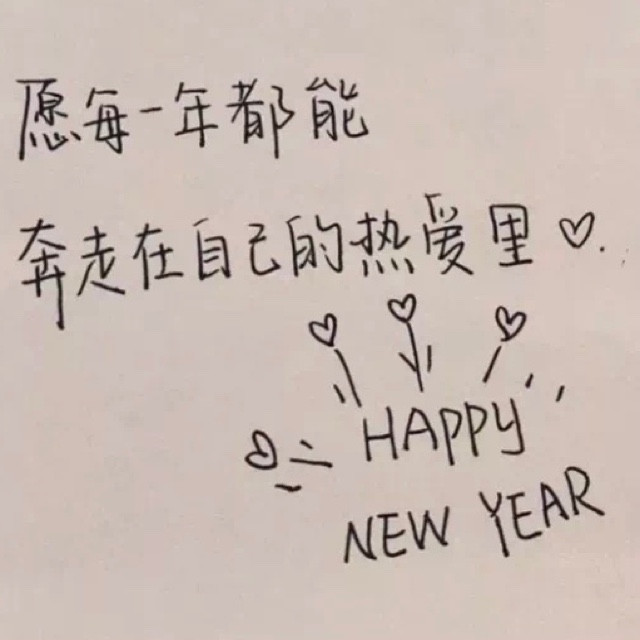 愿每一年都能
奔走在自己的热爱里♡.
HAPPY
NEW YEAR